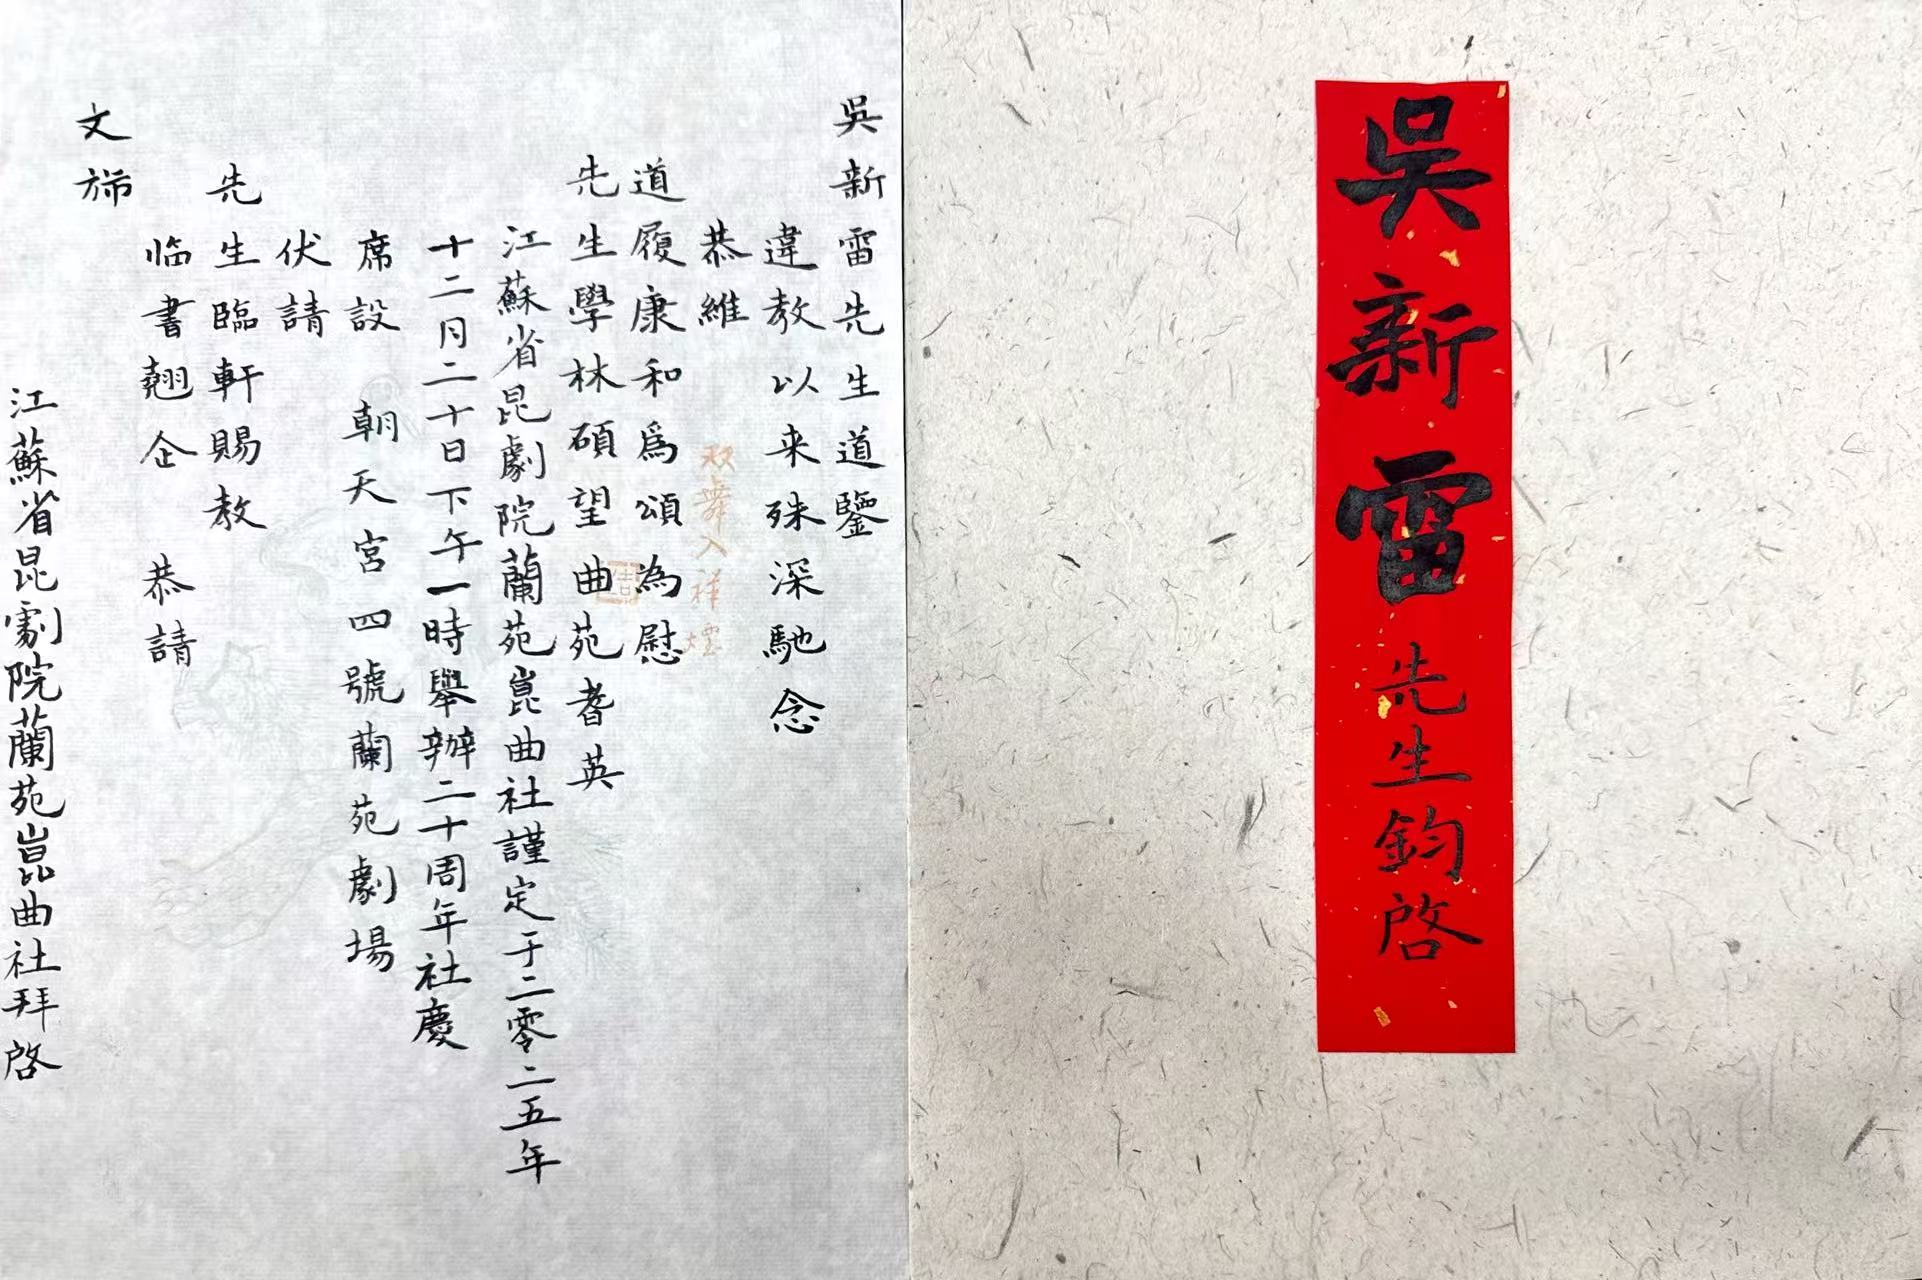 吳新雷先生鈞啓
吳新雷先生道鑒
違教以来殊深馳念
恭維
道履康和爲頌為慰
先生學林碩望曲苑耆英
江蘇省昆劇院蘭苑崑曲社謹定于二零二五年
十二月二十日下午一時舉辦二十周年社慶
席設 朝天宮四號蘭苑劇場
伏請
先生臨軒賜教
临書翹企 恭請
文旆
江蘇省昆劇院蘭苑崑曲社拜啓